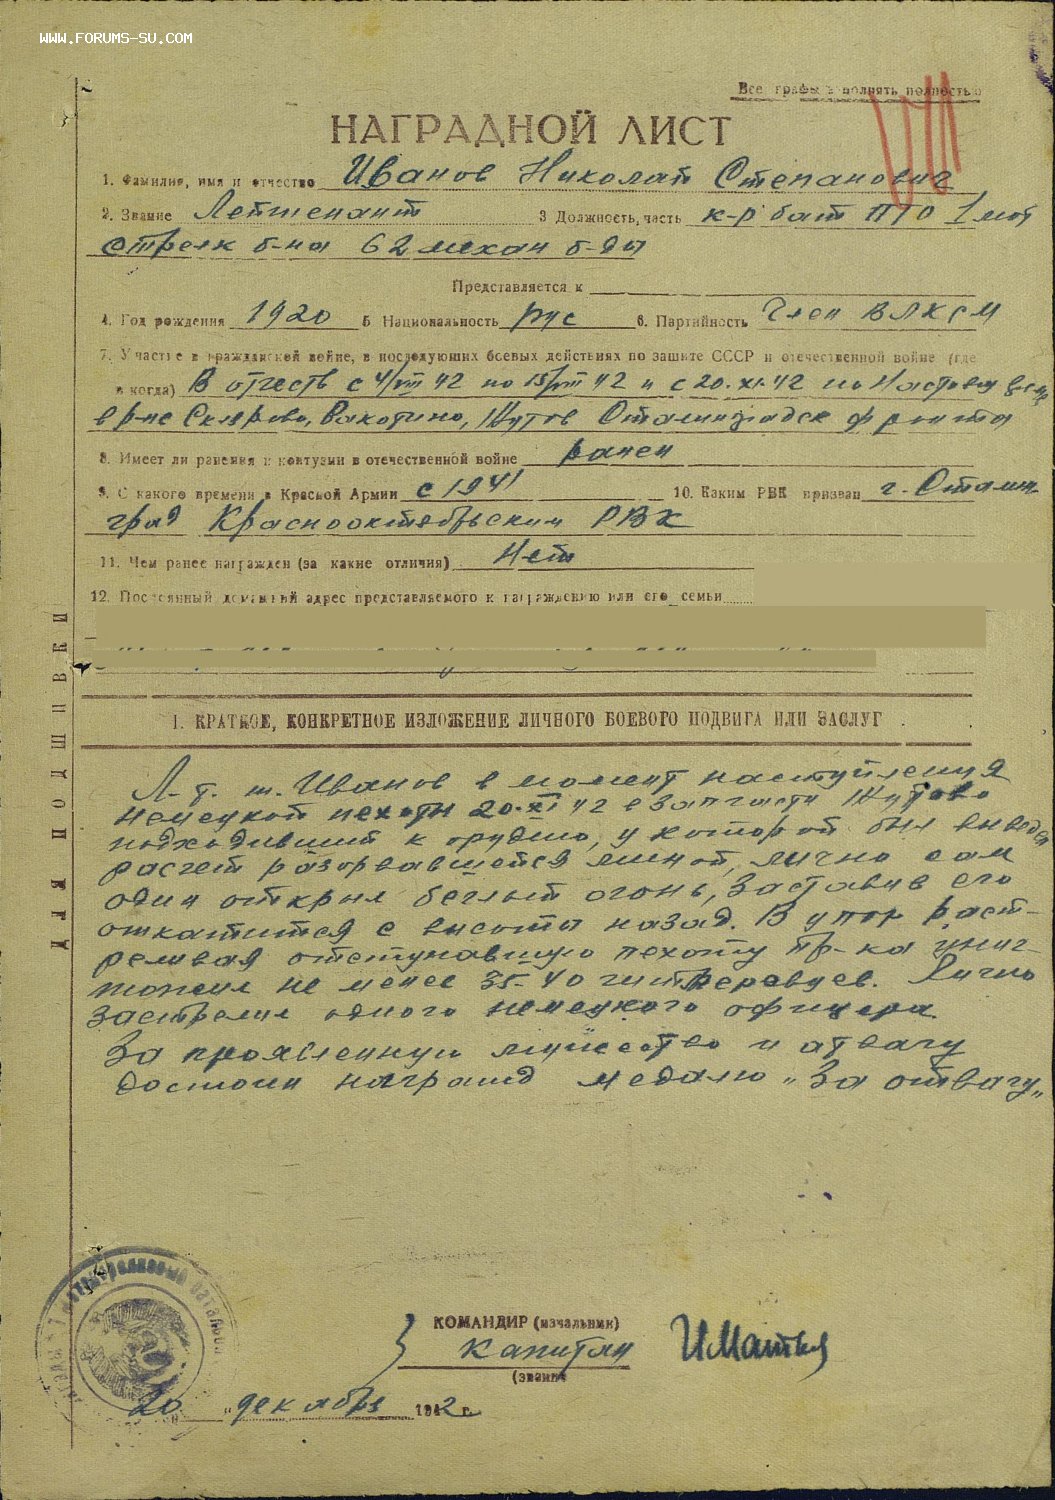 WWW.FORUMS-SU.COM
Все графы заполнять полностью
НАГРАДНОЙ ЛИСТ
1. Фамилия, имя и отчество Иванов Николай Степанович
2. Звание Лейтенант 3 Должность, часть к-р бат ПТО 1 мот
стрелк б-на 62 механ б-ды
Представляется к
4. Год рождения 1920 5 Национальность рус 6. Партийность Член ВЛКСМ
7. Участие в гражданской войне, в последующих боевых действиях по защите СССР и отечественной войне (где
и когда) В отечеств с 4/VIII 42 по 15/VIII 42 и с 20.XI.42 по Настоящ
в р-не Склярово, Ракотино, Жутов Сталинградск фронта
8. Имеет ли ранения и контузии в отечественной войне ранен
9. С какого времени в Красной Армии с 1941 10. Каким РВК призван г. Сталин-
град Краснооктябрьским РВК
11. Чем ранее награжден (за какие отличия) Нет
12. Постоянный домашний адрес представляемого к награждению или его семьи
ДЛЯ ПОДШИВКИ
1. КРАТКОЕ, КОНКРЕТНОЕ ИЗЛОЖЕНИЕ ЛИЧНОГО БОЕВОГО ПОДВИГА ИЛИ ЗАСЛУГ
Л-т. т. Иванов в момент наступления
немецкой пехоты 20.XI 42 Жутово
подходивший к орудию, у которой был выведен
расчет разорвавшейся миной, лично сам
один открыл беглый огонь, заставив его
откатится с высоты назад. В упор раст-
реливая отступавшую пехоту пр-ка унич-
тожил не менее 35-40 гитлеровцев. Лично
застрелил одного немецкого офицера.
За проявленную мужество и отвагу
достоин наград медалю „За отвагу„
КОМАНДИР (начальник)
капитан
(звание)
20 „ декабря 1942 г.